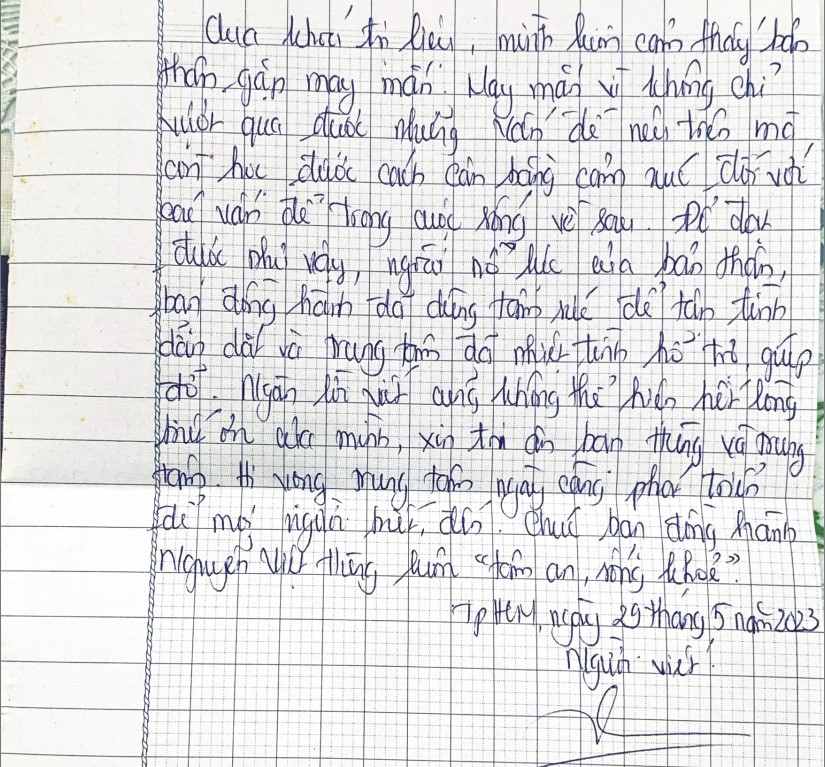 Qua khoá trị liệu, mình luôn cảm thấy bản
thân gặp may mắn. May mắn vì không chỉ
vượt qua được những vấn đề nêu trên mà
còn học được cách cân bằng cảm xúc đối với
các vấn đề trong cuộc sống về sau. Để đạt
được như vậy, ngoài nỗ lực của bản thân,
bạn đồng hành đã dùng tâm sức để tận tình
dẫn dắt và trung tâm đã nhiệt tình hỗ trợ, giúp
đỡ. Ngàn lời viết cũng không thể hiện hết lòng
biết ơn của mình, xin tri ân bạn Hùng và trung
tâm. Hi vọng trung tâm ngày càng phát triển
để mọi người biết đến. Chúc bạn đồng hành
Nguyễn Việt Hùng luôn "tâm an, sống khoẻ".
TpHCM, ngày 29 tháng 5 năm 2023
Người viết